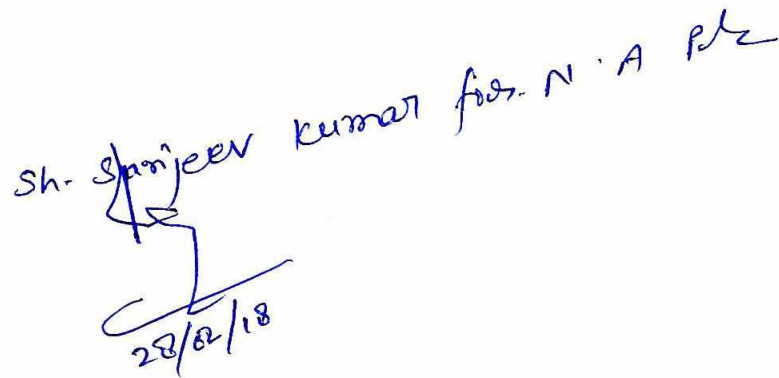 Sh. Sanjeev Kumar for N.A Plz
28/02/18